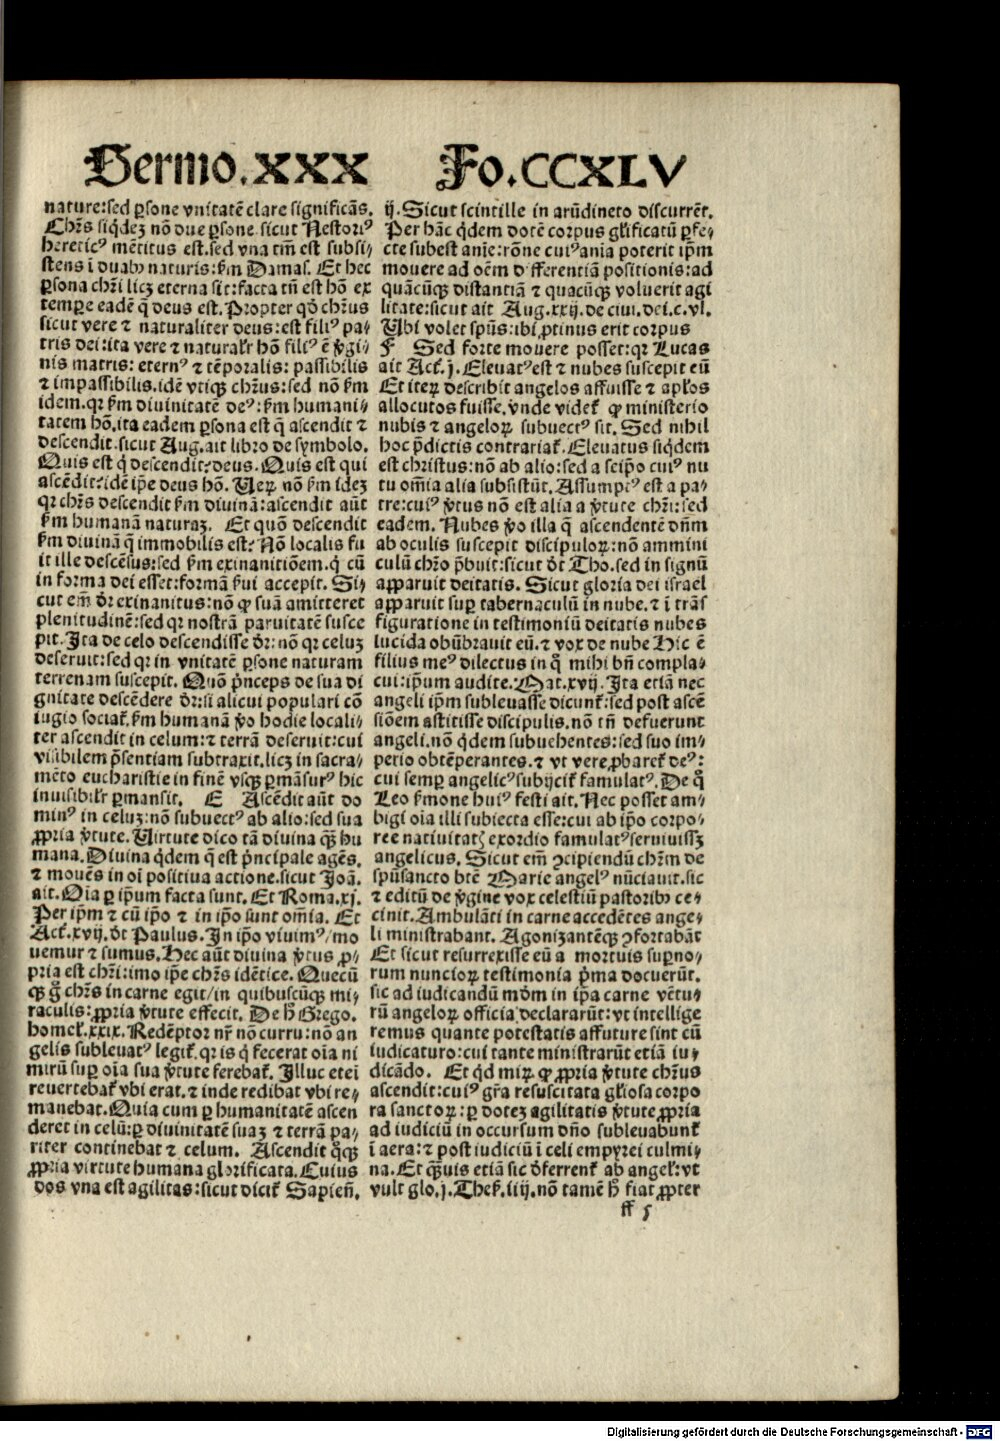 Sermo.XXX
Fo.CCXLV
nature:sed ꝑsone vnitatē clare significās.
Chr̄s siqͥdeꝫ nō due ꝑsone sicut Nestoriꝰ
hereticꝰ mētitus est.sed vna tm̄ est subsi⸗
stens ī duabꝫ naturis:ẜm Damas. Et hec
ꝑsona chr̄i licꝫ eterna sit:facta tn̄ est hō ex
tempꝑe eadē q̄ deus est. Propter qd̄ chr̄us
sicut vere ⁊ naturaliter deus:est filiꝰ pa⸗
tris dei:ita vere ⁊ naturalr̄ hō filiꝰ ē v̄gi⸗
nis matris: eternꝰ ⁊ tēporalis: passibilis
⁊ impassibilis.idē vtiqꝫ chr̄us:sed nō ẜm
idem.qr ẜm diuinitatē deꝰ: ẜm humani⸗
tatem hō.ita eadem ꝑsona est q̄ ascendit ⁊
descendit.sicut Aug.ait libro de symbolo.
Quis est qͥ descendit?deus. Quis est qui
ascēdit?idē ip̄e deus hō. Ueꝝ nō ẜm ideꝫ
qr chr̄s descendit ẜm diuinā:ascendit aūt
ẜm humanā naturaꝫ. Et quō descendit
ẜm diuinā q̄ immobilis est? Nō localis fu
it ille descēsus:sed ẜm exinanitiōem.qͥ cū
in forma dei esset:formā ẜui accepit. Si⸗
cut em̄ dr̄ exinanitus:nō ꝙ suā amitteret
plenitudinē:sed qr nostrā paruitatē susce
pit. Ita de celo descendisse dr̄: nō qr celuꝫ
deseruit:sed qr in vnitatē ꝑsone naturam
terrenam suscepit. Quō pͥnceps de sua di
gnitate descēdere dr̄:si alicui populari cō
iugio sociat̄.ẜm humanā v̄o hodie locali⸗
ter ascendit in celum:⁊ terrā deseruit:cui
visibilem p̄sentiam subtraxit.licꝫ in sacra⸗
mēto eucharistie in finē vsqꝫ ꝑmāsurꝰ hic
inuisibilr̄ ꝑmansit. E Ascēdit aūt do
minꝰ in celuꝫ:nō subuectꝰ ab alio:sed sua
ꝓpria v̄tute. Uirtute dico tā diuina qꝫ̄ hu
mana. Diuina qͥdem q̄ est pͥncipale agēs.
⁊ mouēs in oī positiua actione.sicut Joā.
ait. Oīa ꝑ ip̄um facta sunt. Et Roma.xj.
Per ip̄m ⁊ cū ip̄o ⁊ in ip̄o sunt om̄ia. Et
Act̄.xvij.dt̄ Paulus. In ip̄o viuimꝰ/mo
uemur ⁊ sumus. Hec aūt diuina v̄tus ꝓ⸗
pria est chr̄i:imo ip̄e chr̄s idētice. Quecū
qꝫ gͦ chr̄s in carne egit/in quibuscūqꝫ mi⸗
raculis:ꝓpria v̄tute effecit. De h̄ Grego.
homel̄.xxix. Redēptor nr̄ nō curru:nō an
gelis subleuatꝰ legit̄.qr is qͥ fecerat oīa ni
mirū suꝑ oīa sua v̄tute ferebat̄. Illuc etei
reuertebat̄ vbi erat.⁊ inde redibat vbi re⸗
manebat. Quia cum ꝑ humanitatē ascen
deret in celū:ꝑ diuinitatē suaꝫ ⁊ terrā pa⸗
riter continebat ⁊ celum. Ascendit qͦqꝫ
ꝓpria virtute humana glorificata. Cuius
dos vna est agilitas:sicut dicit̄ Sapien̄.
ij. Sicut scintille in arūdineto discurrēt.
Per hāc qͥdem dotē corpus gl̄ificatū ꝑfe⸗
cte subest anīe:rōne cuiꝰ anīa poterit ip̄m
mouere ad oēm dr̄fferentiā positionis:ad
quācūqꝫ distantiā ⁊ quacūqꝫ voluerit agi
litate:sicut ait Aug.xxij.de ciui.dei.c.vl.
Ubi volet sp̄us:ibi ꝓtinus erit corpus
F Sed forte mouere posset:qr Lucas
ait Act̄.j. Eleuatꝰ est ⁊ nubes suscepit eū
Et iteꝝ describit angelos affuisse ⁊ ap̄los
allocutos fuisse.vnde videt̄ ꝙ ministerio
nubis ⁊ angeloꝝ subuectꝰ sit. Sed nihil
hoc p̄dictis contrariat̄. Eleuatus siqͥdem
est christus:nō ab alio:sed a seip̄o cuiꝰ nu
tu om̄ia alia subsistūt. Assumptꝰ est a pa⸗
tre:cuiꝰ v̄tus nō est alia a v̄tute chr̄i:sed
eadem. Nubes v̄o illa q̄ ascendentē dn̄m
ab oculis suscepit discipuloꝝ:nō ammini
culū chr̄o p̄buit:sicut dt̄ Tho.sed in signū
apparuit deitatis. Sicut gloria dei israel
apparuit suꝑ tabernaculū in nube.⁊ ī trās
figuratione in testimoniū deitatis nubes
lucida obūbrauit eū.⁊ vox de nube Hic ē
filius meꝰ dilectus in qͦ mihi bn̄ compla⸗
cui:ip̄um audite. Mat.xvij. Ita etiā nec
angeli ip̄m subleuasse dicunt̄:sed post ascē
siōem astitisse discipulis.nō tn̄ defuerunt
angeli.nō qͥdem subuehentes:sed suo im⸗
perio obtēperantes.⁊ vt vere ꝓbaret̄ deꝰ:
cui semꝑ angelicꝰ subijcit̄ famulatꝰ. De qͦ
Leo ẜmone huiꝰ festi ait. Nec posset am⸗
bigi oīa illi subiecta esse:cui ab ip̄o corpo⸗
ree natiuitatꝭ exordio famulatꝰ seruiuissꝫ
angelicus. Sicut em̄ ꝯcipiendū chr̄m de
sp̄usancto btē Marie angelꝰ nūciauit.sic
⁊ editū de v̄gine vox celestiū pastoribꝫ ce⸗
cinit. Ambulāti in carne accedētes ange⸗
li ministrabant. Agonizantēqꝫ ꝯfortabāt
Et sicut resurrexisse eū a mortuis suꝑno⸗
rum nuncioꝝ testimonia pͥma docuerūt.
sic ad iudicandū mōm in ip̄a carne vētu⸗
rū angeloꝝ officia declararūt:vt intellige
remus quante potestatis affuture sint cū
iudicaturo:cui tante ministrarūt etiā iu⸗
dicādo. Et qͥd miꝝ ꝙ ꝓpria v̄tute chr̄us
ascendit:cuiꝰ gr̄a resuscitata gl̄iosa corpo
ra sanctoꝝ:ꝑ doteꝫ agilitatis v̄tute ꝓpria
ad iudiciū in occursum dn̄o subleuabunt̄
ī aera:⁊ post iudiciū ī celi empyrei culmi⸗
na. Et qꝫ̄uis etiā sic dr̄ferrent̄ ab angel̄:vt
vult glo.j. Thes̄.iiij.nō tamē h̄ fiat ꝓpter
ff 5
Digitalisierung gefördert durch die Deutsche Forschungsgemeinschaft - DFG